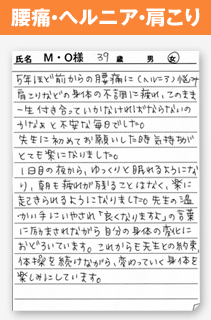 腰痛・ヘルニア・肩こり
氏名 M・O様 39歳 男 女
5年ほど前からの腰痛に(ヘルニア)悩み
肩こりなどの身体の不調に疲れ、このまま
一生付き合っていかなければならないの
かなぁと不安な毎日でした。
先生に初めてお願いした時気持ちが
とても楽になりました。
1日目の夜から、ゆっくりと眠れるようにな
り、朝も疲れが残ることはなく、楽に
起きられるようになりました。先生の温
かい手にいやされ「良くなりますよ」の言葉
に励まされながら自分の身体の変化に
おどろいています。これからも先生との約束、
体操を続けながら、変わっていく身体を
楽しみにしています。